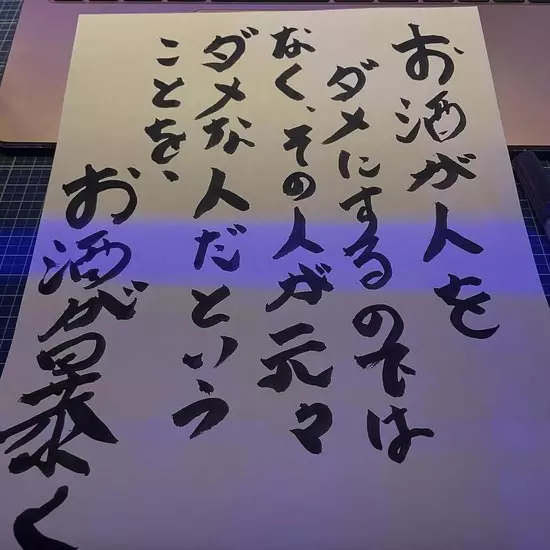 お酒が人を
ダメにするのでは
なく、その人が元々
ダメな人だという
ことを、
お酒が暴く